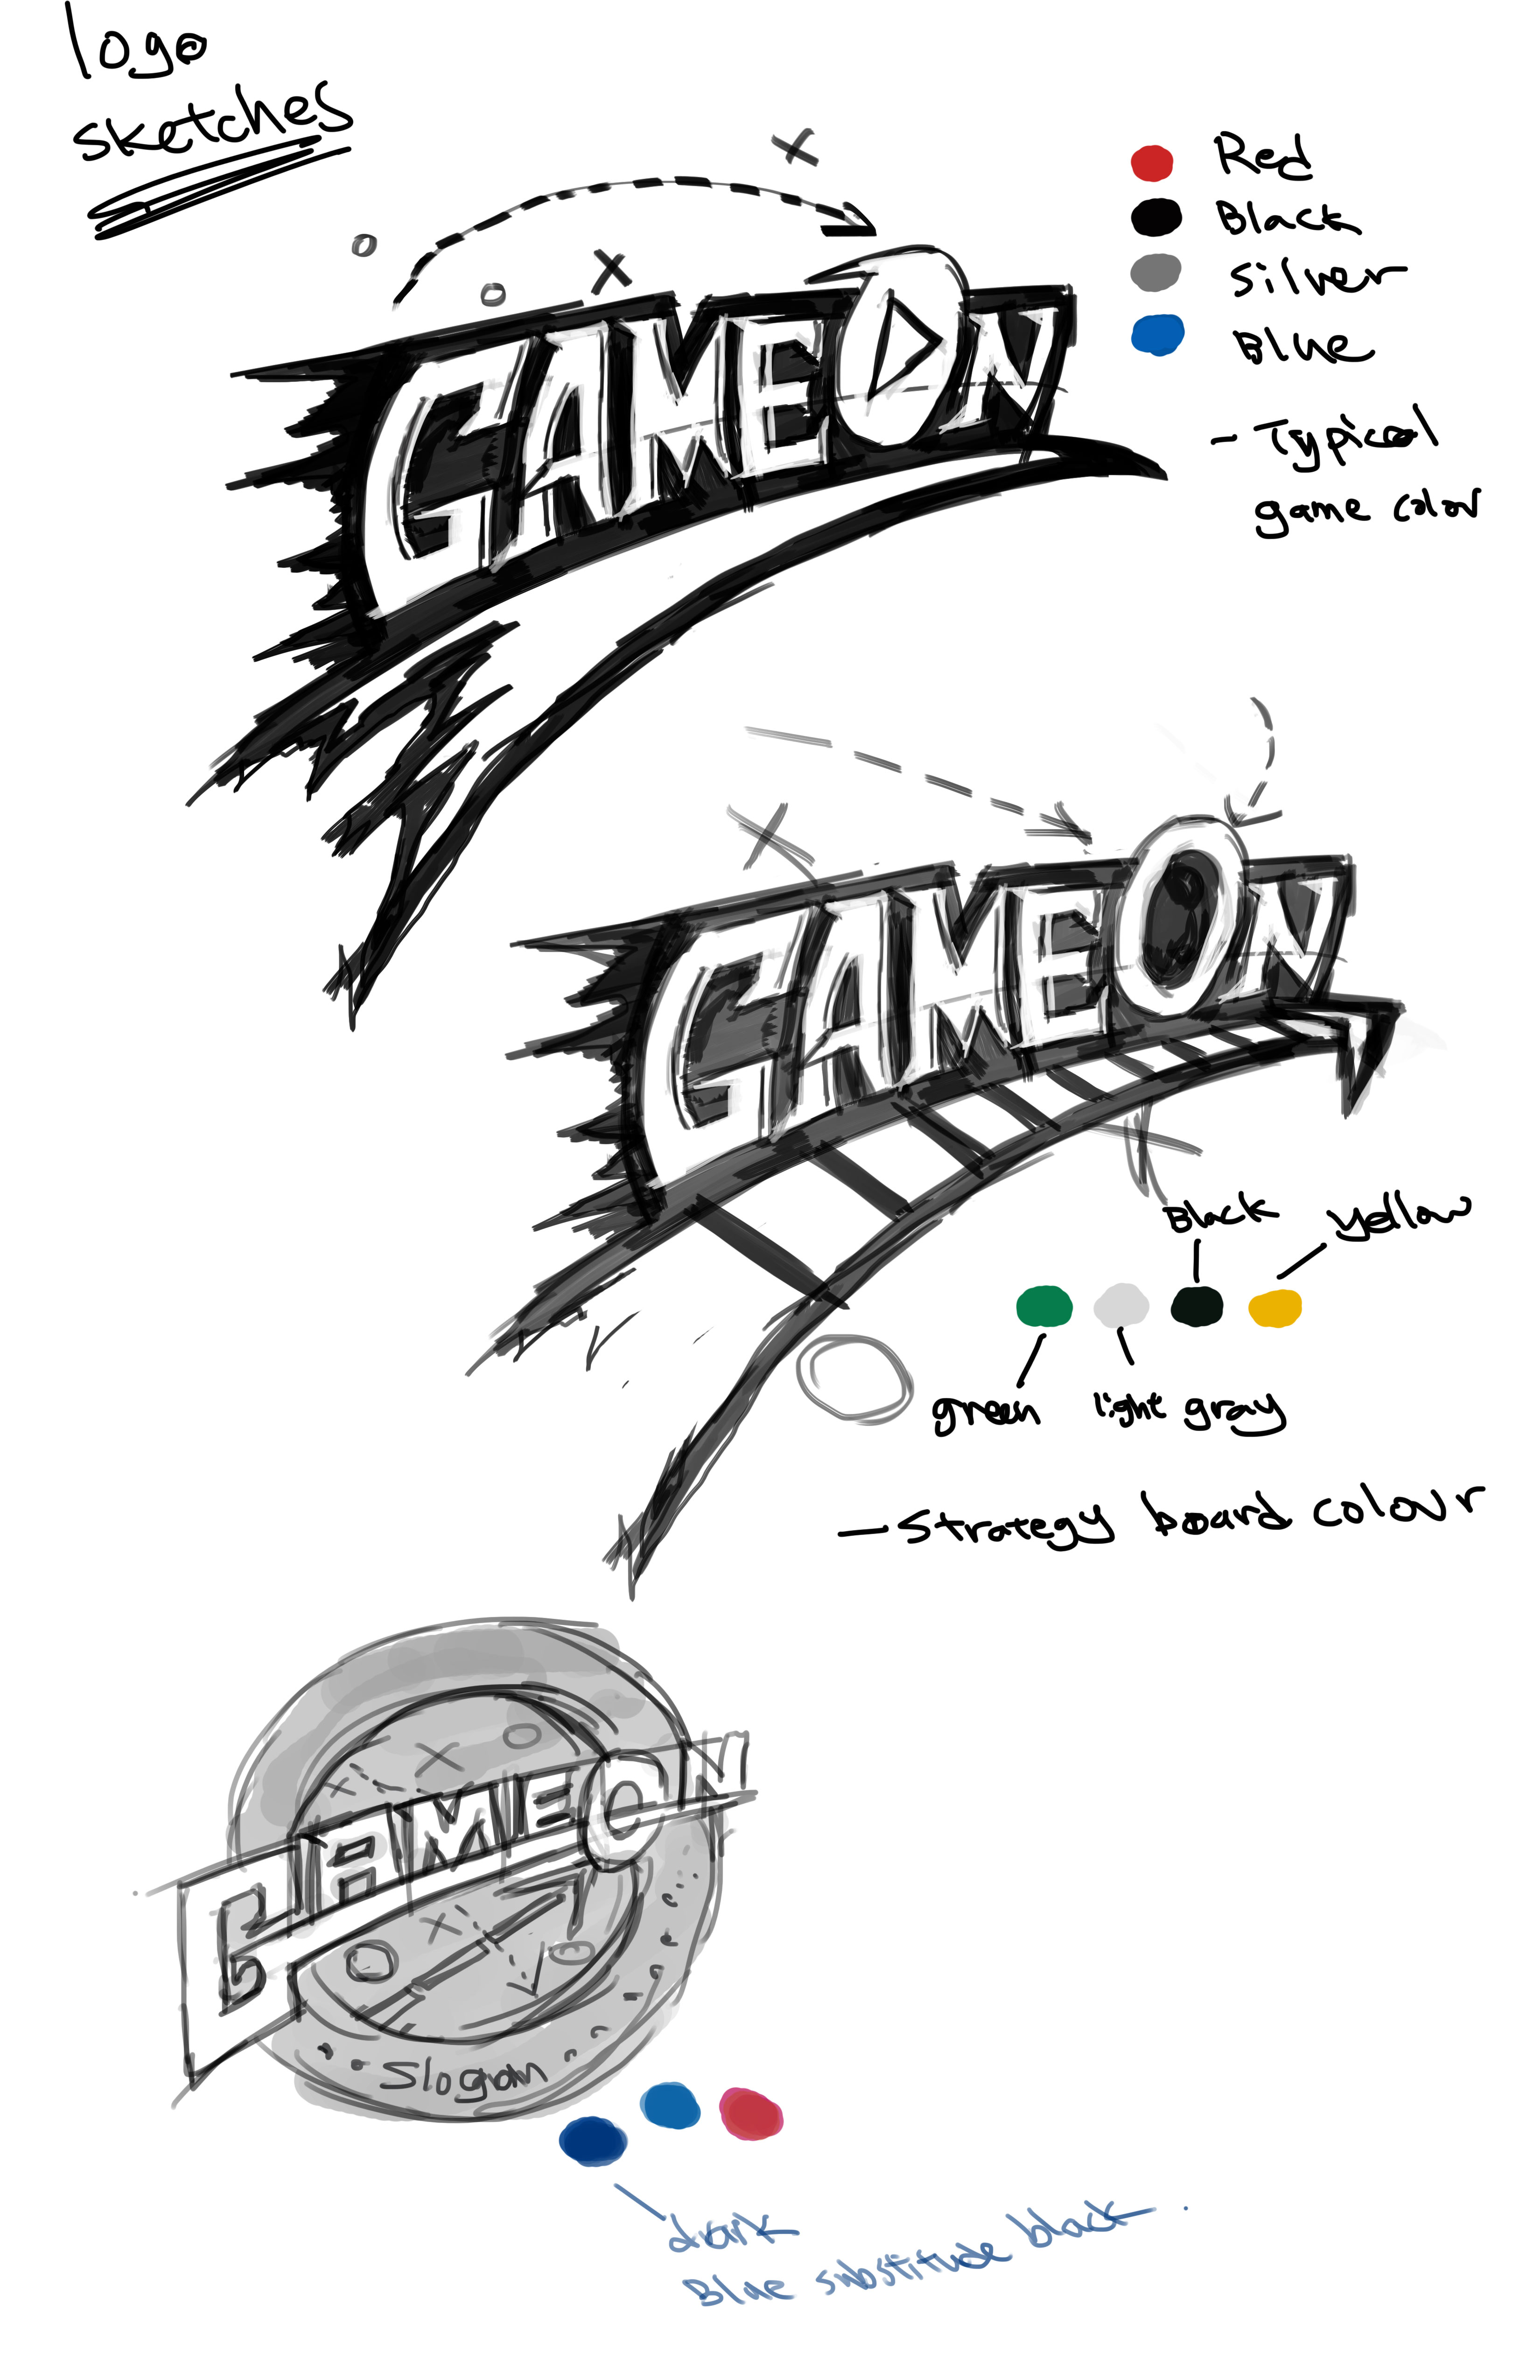 logo
sketches
Red
Black
Silver
Blue
- Typical
game color
GAMEON
GAMEON
Black
yellow
green
light gray
- Strategy board colour
GAMEON
Slogan
dark
Blue substitude black